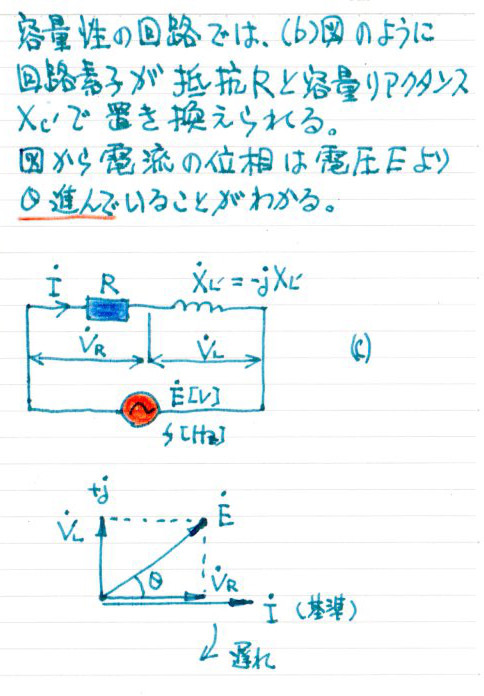 容量性の回路では、(b)図のように
回路素子が抵抗Rと容量リアクタンス
Xc'で置き換えられる。
図から電流の位相は電圧Eより
θ進んでいることがわかる。
İ R ẊL' = -jXL'
V̇R V̇L (c)
Ė[V]
f[Hz]
+j
V̇L Ė
θ V̇R
İ (基準)
遅れ